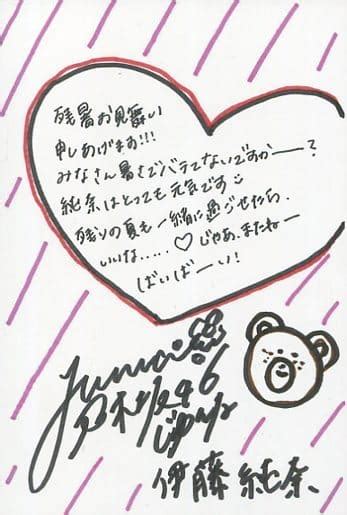 残暑お見舞い
申しあげます!!!
みなさん暑さでバテてないですかー?
純奈はとっても元気です
残りの夏も一緒に過ごせたら、
いいな……♡じゃあ、またねー
ばいばーい!
Junna
乃木坂46
伊藤純奈